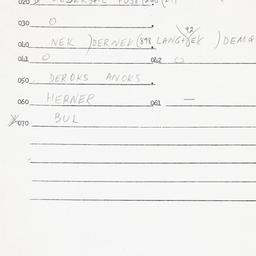 020
030 O
92
040 NEK ) DERNEK (898 LANGAJEK ) DEM
041 O 042 O
050 DEROKS ANOKS
060 HERNER 061 —
070 BUL